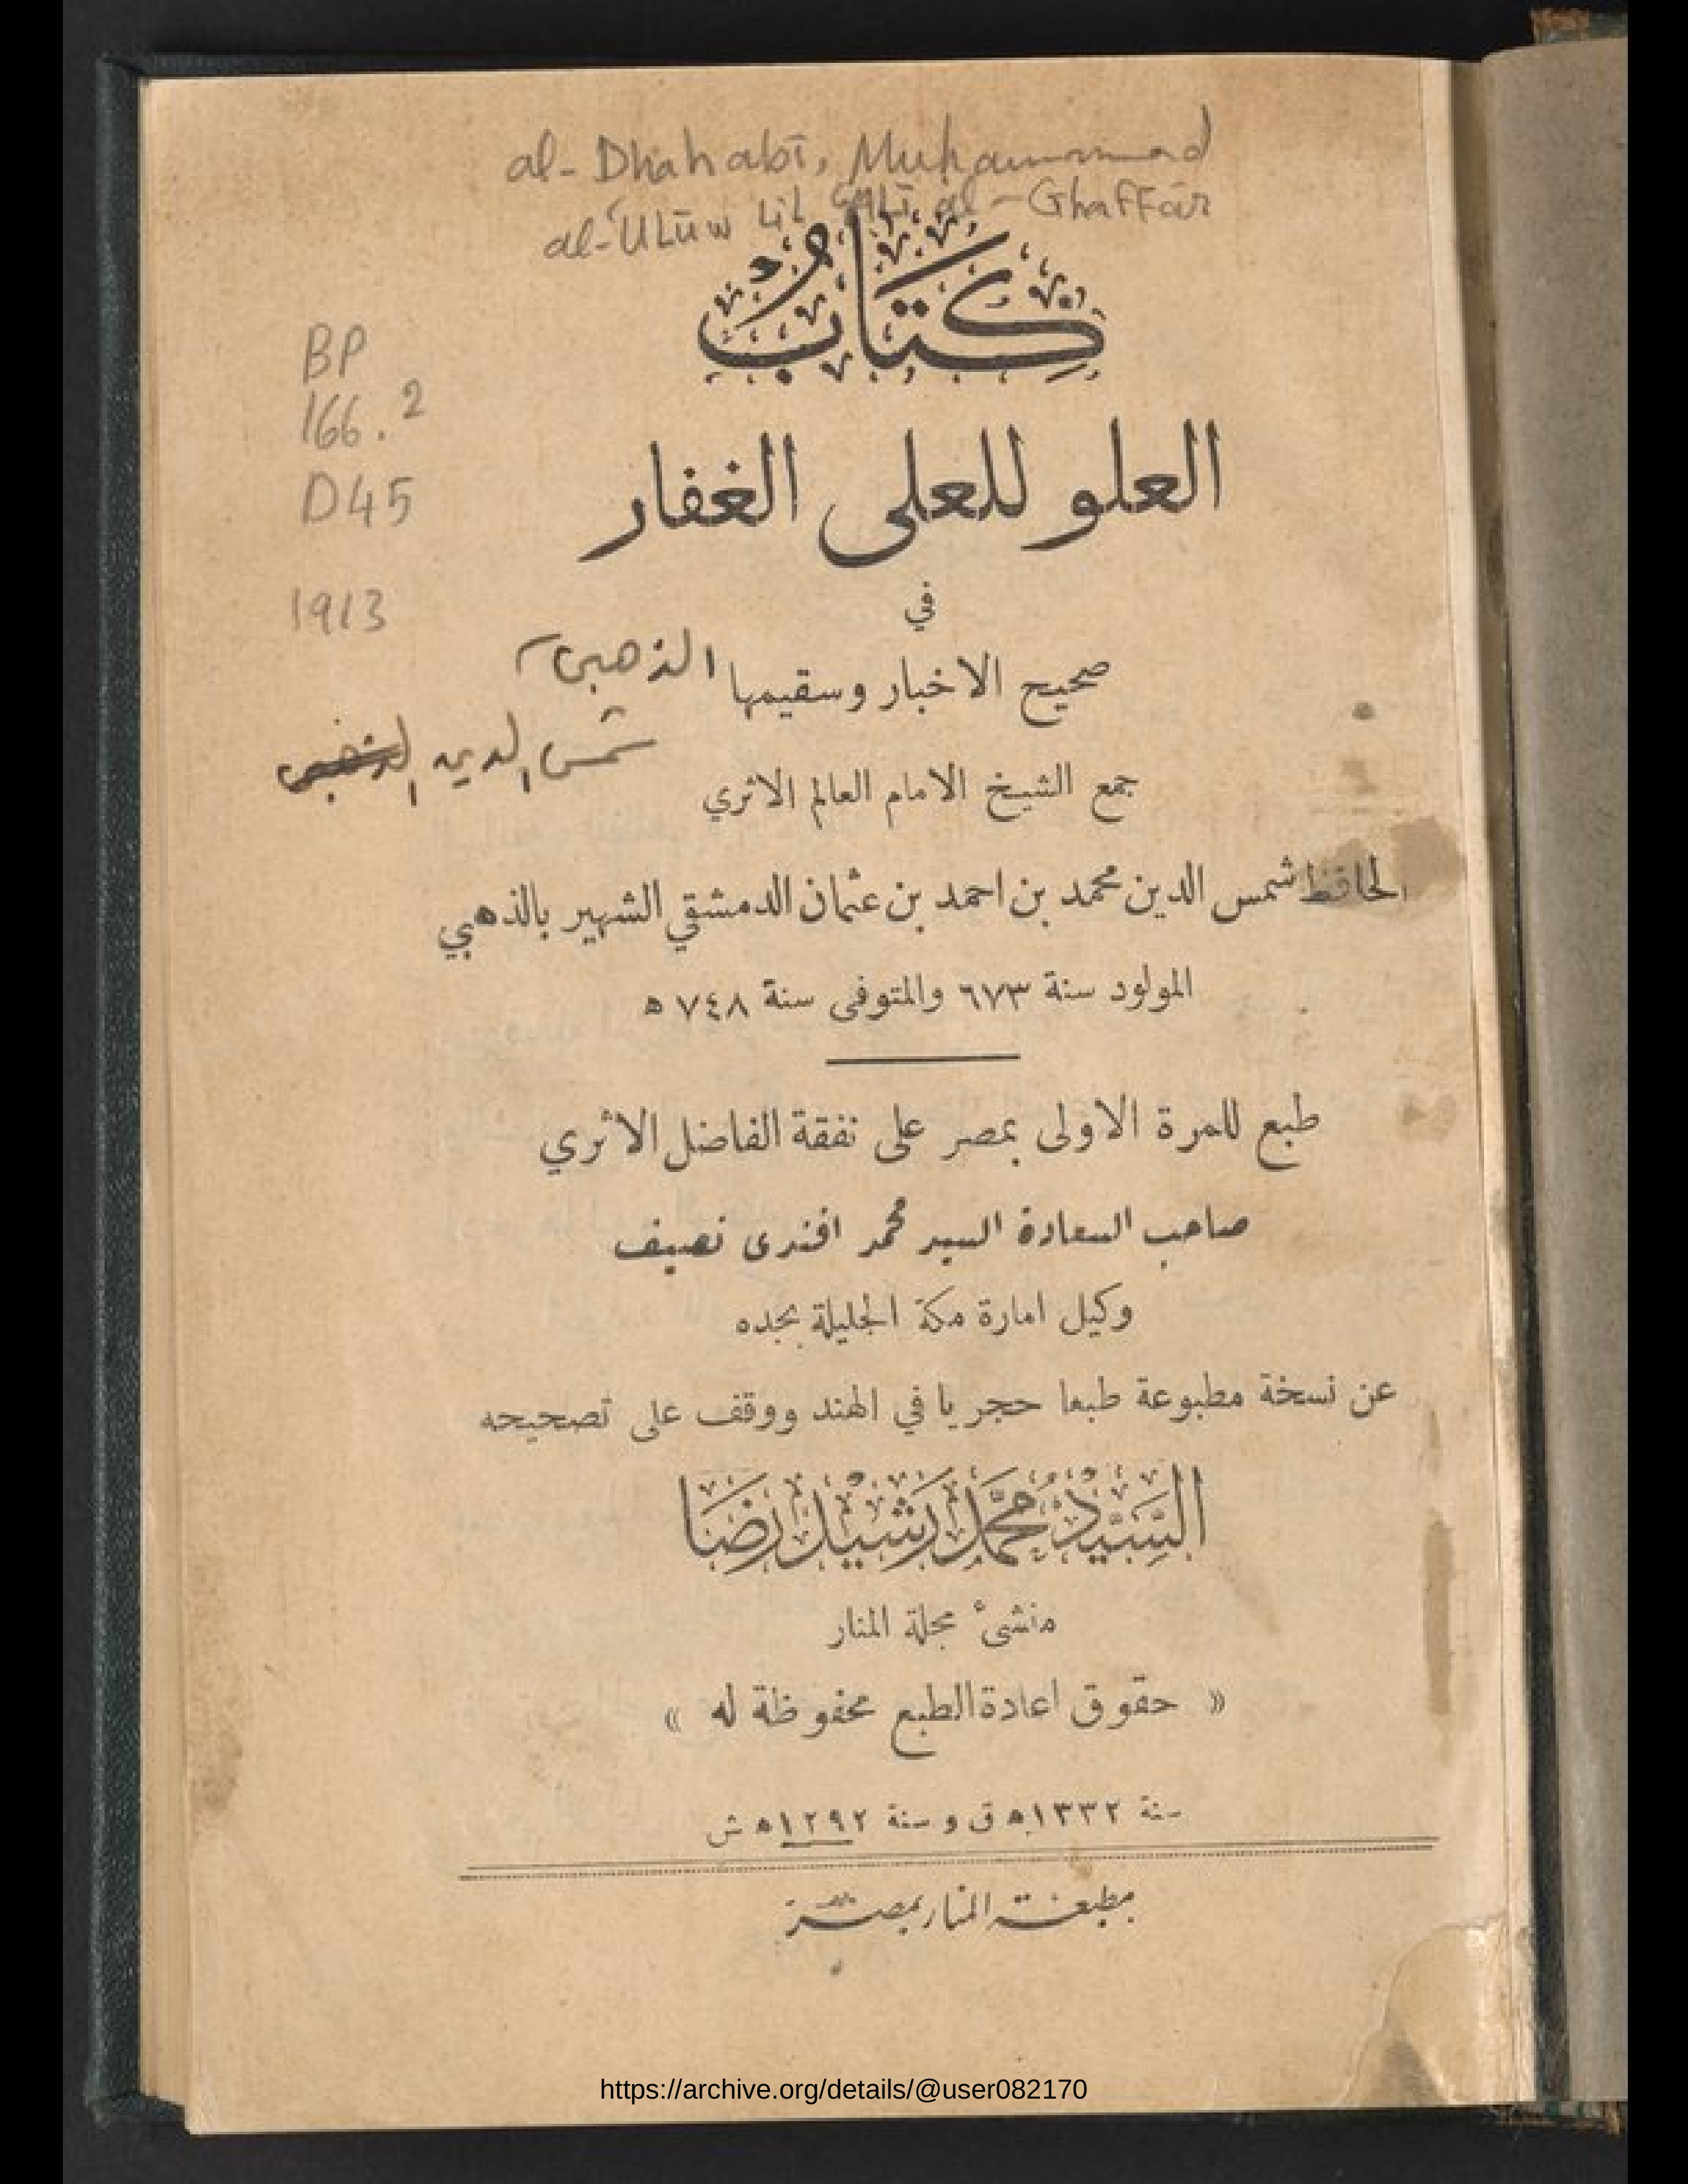 al-Dhahabī, Muḥammad
al-ʿUlūw lil ʿAlī al-Ghaffār
كِتَابُ
BP
166.2
D45
العلو للعلى الغفار
في
1913
صحيح الاخبار وسقيمها
الذهبى
شمس الدين
جمع الشيخ الامام العالم الاثري
الحافظ شمس الدين محمد بن احمد بن عثمان الدمشقي الشهير بالذهبي
المولود سنة ٦٧٣ والمتوفى سنة ٧٤٨ ه
طبع للمرة الاولى بمصر على نفقة الفاضل الأثري
صاحب السعادة السيد محمد افندى نصيف
وكيل امارة مكة الجليلة بجده
عن نسخة مطبوعة طبعا حجريا في الهند ووقف على تصحيحه
السَّيِّد مُحَمَّد رَشِيْد رِضَا
منشىء مجلة المنار
« حقوق اعادة الطبع محفوظة له »
سنة ١٣٣٢ه ق و سنة ١٢٩٢ه ش
مطبعة المنار بمصر
https://archive.org/details/@user082170